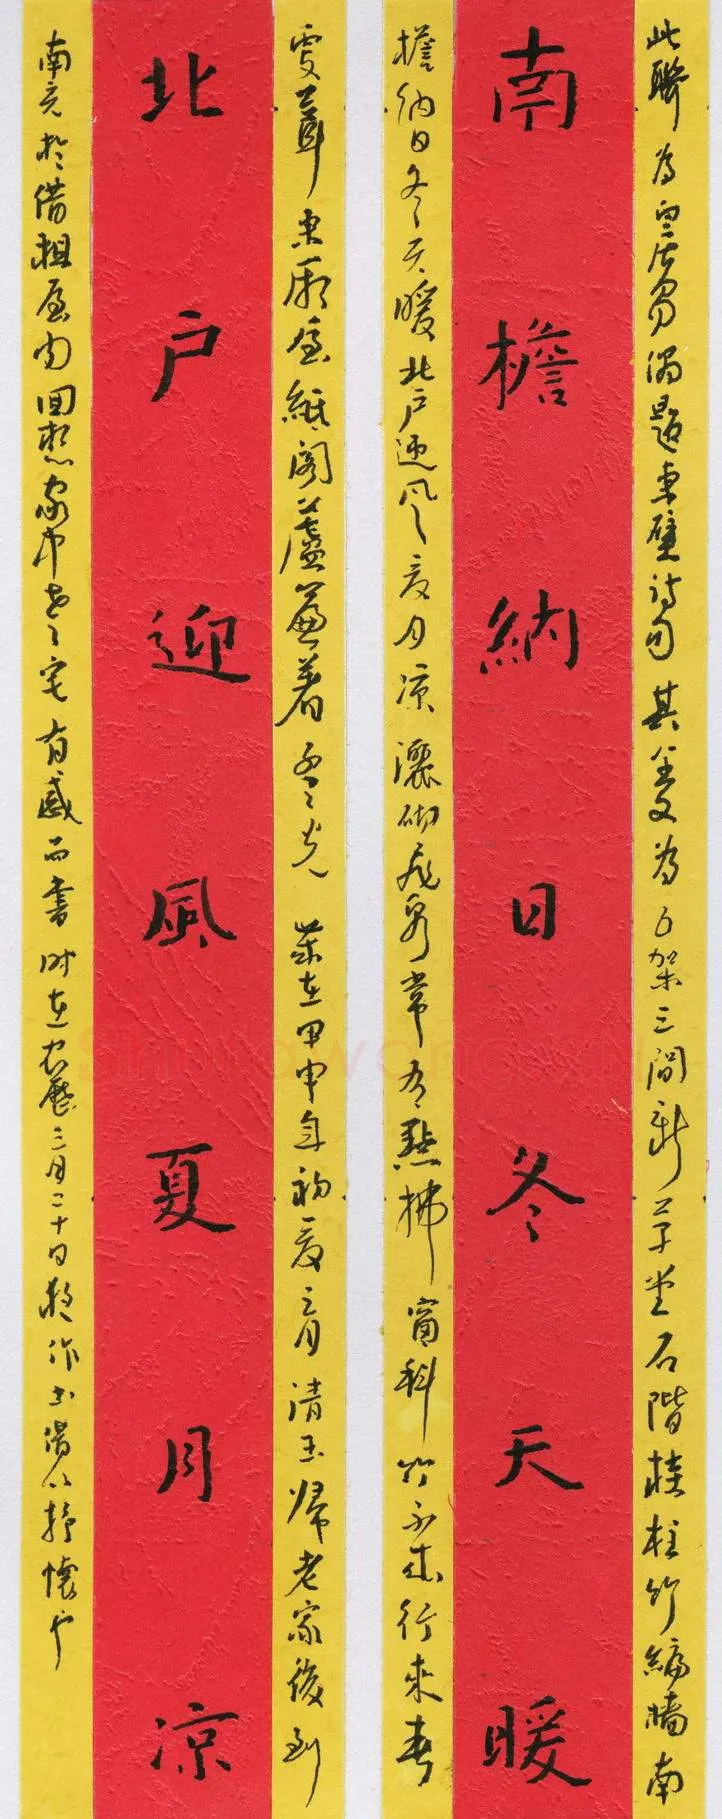 此聯為白居易偶題東壁詩句其全文為五架三間新草堂石階桂柱竹編牆南
南檐納日冬天暖
檐納日冬天暖北戶迎風夏月凉灑砌飛泉常有點拂窗科竹不成行來春
更葺東廂屋紙閣蘆簾著孟光 歲在甲申年初夏三月清玉歸老家後到
北戶迎風夏月凉
南京於借租屋内回想家中老宅有感而書時在農歷三月二十日晚作書借以抒懷也